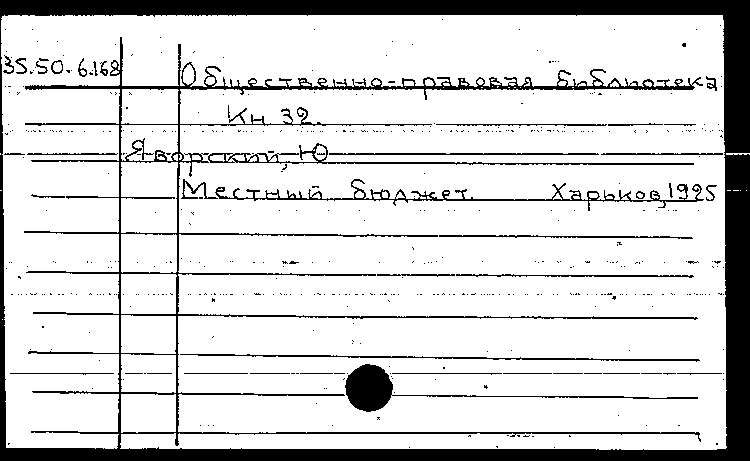 35.50.6.168 Общественно-правовая библиотека
Кн 32.
Яворский, Ю
Местный бюджет. Харьков, 1925